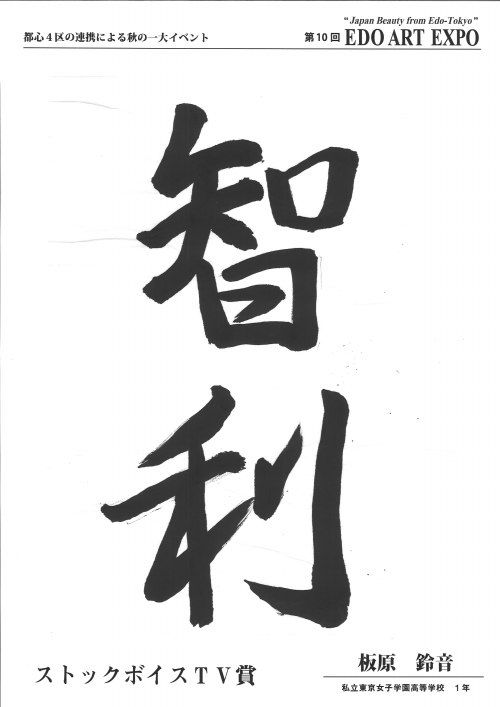 都心4区の連携による秋の一大イベント
"Japan Beauty from Edo-Tokyo"
第10回 EDO ART EXPO
智利
ストックボイスTV賞
板原 鈴音
私立東京女子学園高等学校 1年